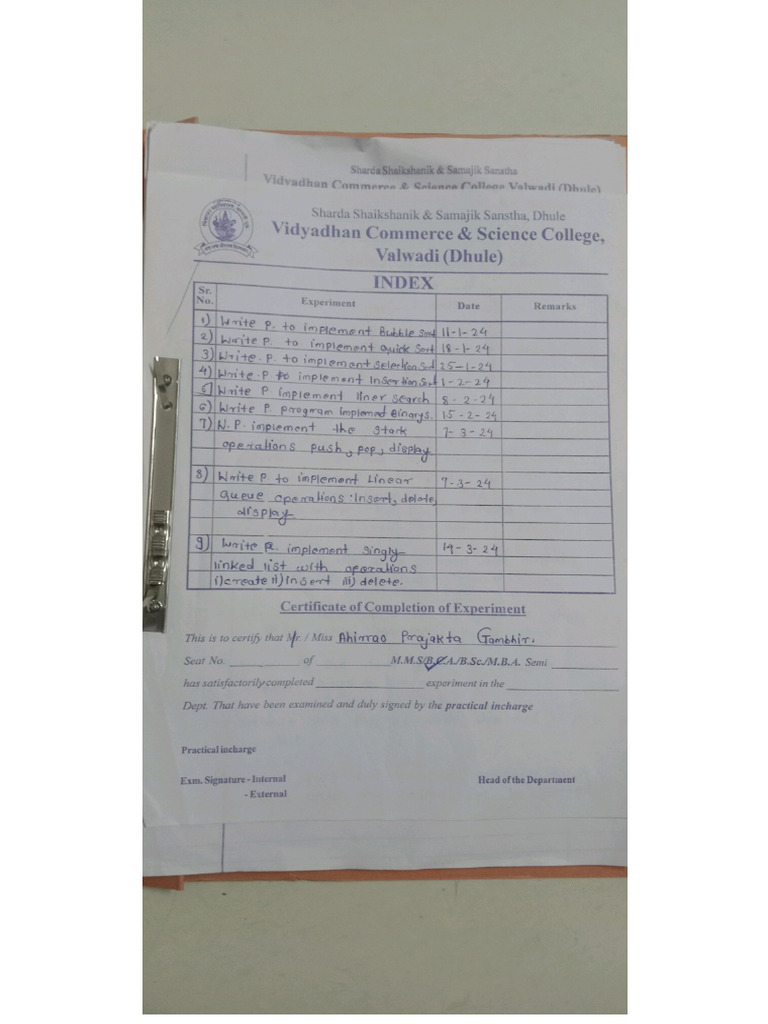 Sharda Shaikshanik & Samajik Sanstha
Vidyadhan Commerce & Science College Valwadi (Dhule)
Sharda Shaikshanik & Samajik Sanstha, Dhule
Vidyadhan Commerce & Science College,
Valwadi (Dhule)
INDEX
Sr. No. Experiment Date Remarks
1) Write P. to implement Bubble Sort 11-1-24
2) Write P. to implement Quick Sort 18-1-24
3) Write. P. to implement selection Sort 25-1-24
4) Write. P to implement Insertion Sort 1-2-24
5) Write P implement liner search 8-2-24
6) Write P. program Implemed Binary S. 15-2-24
7) W.P. implement the Stark 7-3-24
operations push, pop, display
8) Write P. to implement Linear 7-3-24
queue operations: Insert, delete,
display
9) Write P. implement singly 19-3-24
linked list with operations
i) create ii) insert iii) delete.
Certificate of Completion of Experiment
This is to certify that Mr. / Miss Ahirrao Prajakta Gambhir.
Seat No. of M.M.S/B.C.A./B.Sc./M.B.A. Semi
has satisfactorily completed experiment in the
Dept. That have been examined and duly signed by the practical incharge
Practical incharge
Exm. Signature - Internal Head of the Department
- External